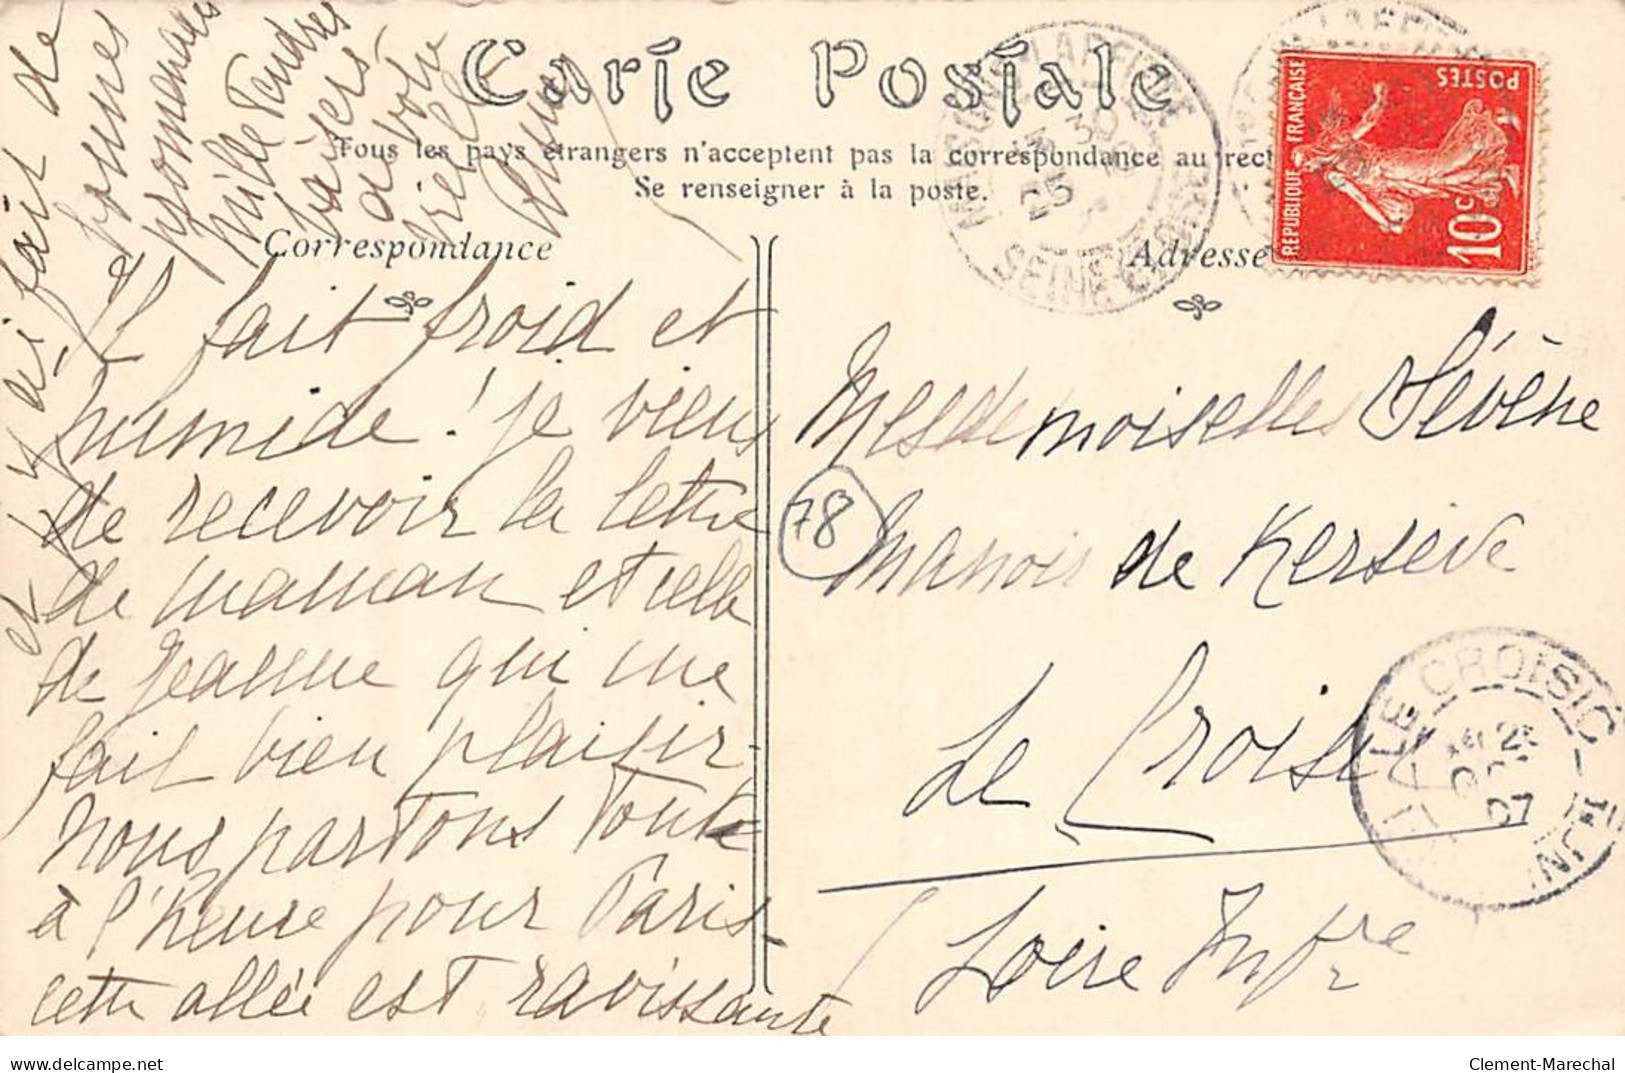 Carte Postale
Tous les pays étrangers n'acceptent pas la correspondance au rect
Se renseigner à la poste.
Correspondance
Adresse
REPUBLIQUE FRANÇAISE
POSTES
10c
MAISONS LAFFITTE
SEINE
25
Il fait froid et
humide ! je viens
de recevoir la lettre
de maman et celle
de Jeanne qui me
fait bien plaisir.
nous partons toute
à l'heure pour Paris
cette allée est ravissante
et j'y ai fait de
bonnes
promenades
mille tendres
baisers
à votre
vieille
Mesdemoiselles Sévène
78
Manoir de Kersève
Le Croisic
Loire Infre
LE CROISIC
07
delcampe.net
Clement-Marechal